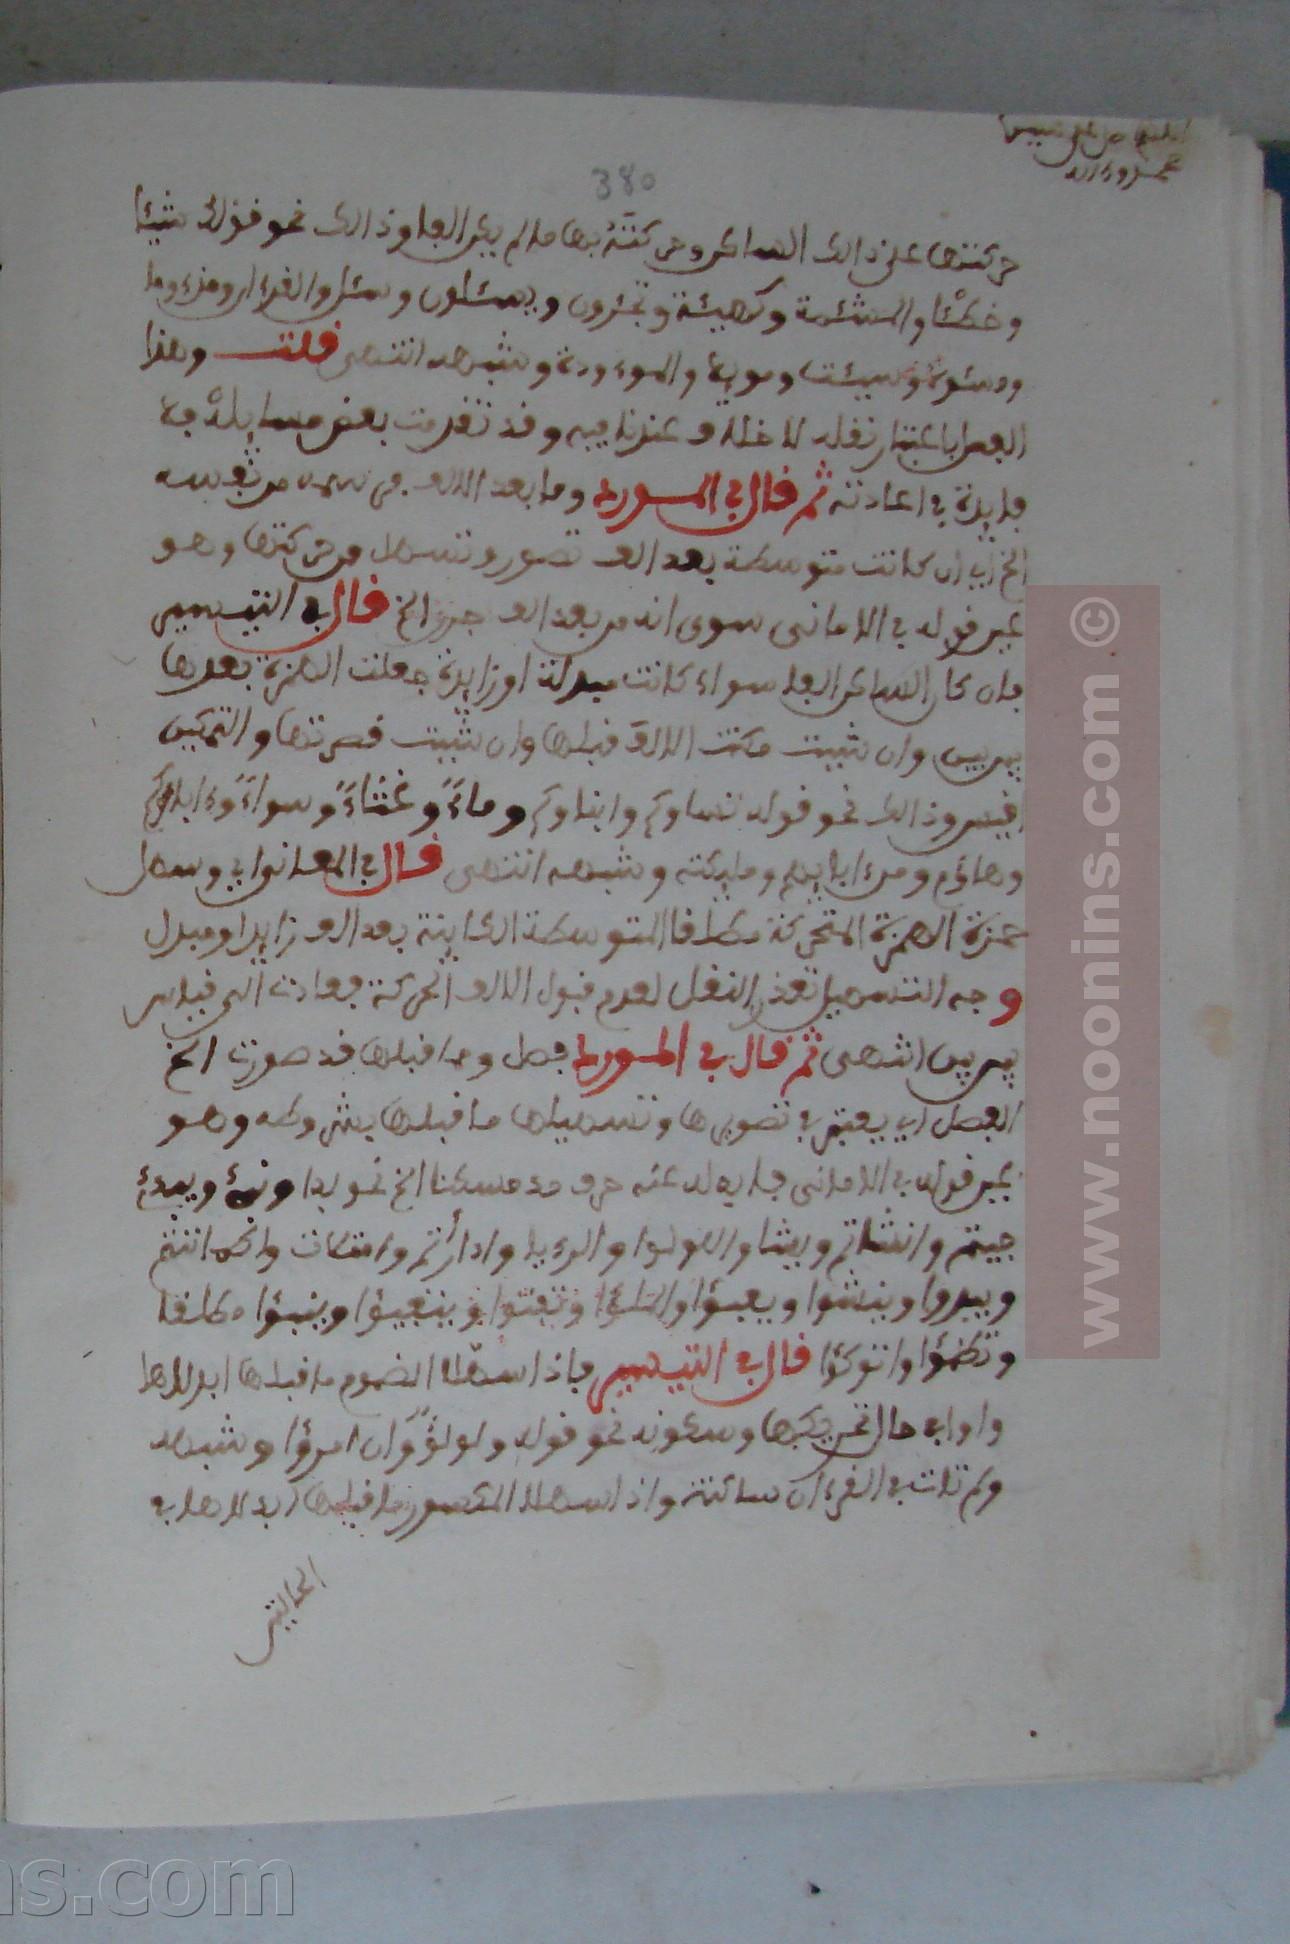 380
حركتها على ذالك الساكن وحركته بها ما لم يكن الفا وذالك نحو قوله شيئا
وخطئا والمشئمة وكهيئة وتجئرون ويسئلون وسئل والقرءان ومذءوما
ومسئولا وسيئت وموئلا والموءودة وشبهه انتهى قلت وهذا
الفصل باعتبار نقله لا خلاف عندنا فيه وقد تقدمت بعض مسايله فلا
فايدة في اعادته ثم قال في المورد وما بعد الالف
الخ اي ان كانت متوسطة بعد الف تصور وتسهل من حركتها وهو
غير قوله في الاماني سوى انه من بعد الف جرى الخ قال في التيسير
فان كان الساكن الفا سواء كانت مبدلة او زايدة جعلت الهمزة بعدها
بين بين وان شيت مكنت الالف قبلها وان شيت قصرتها والتمكين
اقيس وذالك نحو قوله نساوكم وابناوكم وماءً وغثاءً وسواءً وءاباؤكم
وهاؤم ومن ءابايهم وملئكته وشبهه انتهى قال في المعاني اي وسهل
حمزة الهمزة المتحركة مطلقا المتوسطة الكاينة بعد الف زايد او مبدل
وجه التسهيل تعذر النقل لعدم قبول الالف الحركة فعادت الى قياس
بين بين انتهى ثم قال في المورد فصل وما قبلها قد صورت الخ
الفصل اي يعتبر في تصويرها وتسهيلها ما قبلها بشروطه وهو
غير قوله في الاماني فابدله عنه حرف مد مسكنا الخ نحو بدا ونبئ ويبدئ
جيتم وانشاتم ويشا واللولوا والرءيا وادارأتم وامتلات واطماننتم
ويبدوا وينشوا ويعبؤا والملؤا وتفتوا ويتفيؤا وينبؤا مطلقا
وتظمؤا واتوكؤا قال في التيسير فاذا سهلت المضموم ما قبلها ابدلها
واوا في حال تحريكها وسكونه نحو قوله ولولؤ وان امرؤا وشبهه
ولم تات في القرءان ساكنة واذا سهلت المكسور ما قبلها ابدلها في
الحالتين
www.noonins.com ©
ns.com